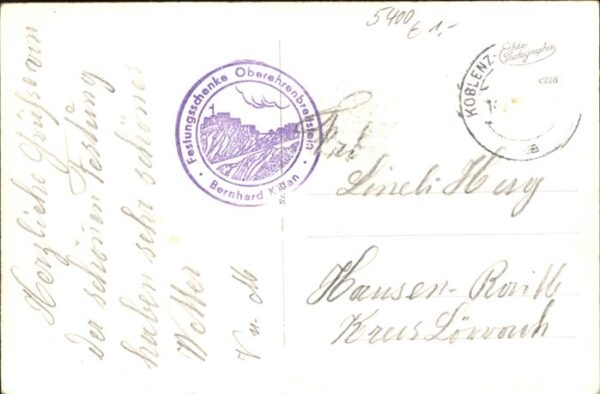 Herzliche Grüße von
der schönen Festung
haben sehr schönes
Wetter
V u. M
Festungsschenke Oberehrenbreitstein
• Bernhard Kilian •
5400
€ 1.-
KOBLENZ
a
Echte
Photographie
e228
Frl
Lineli Herg
Hausen-Raitb
Kreis Lörrach